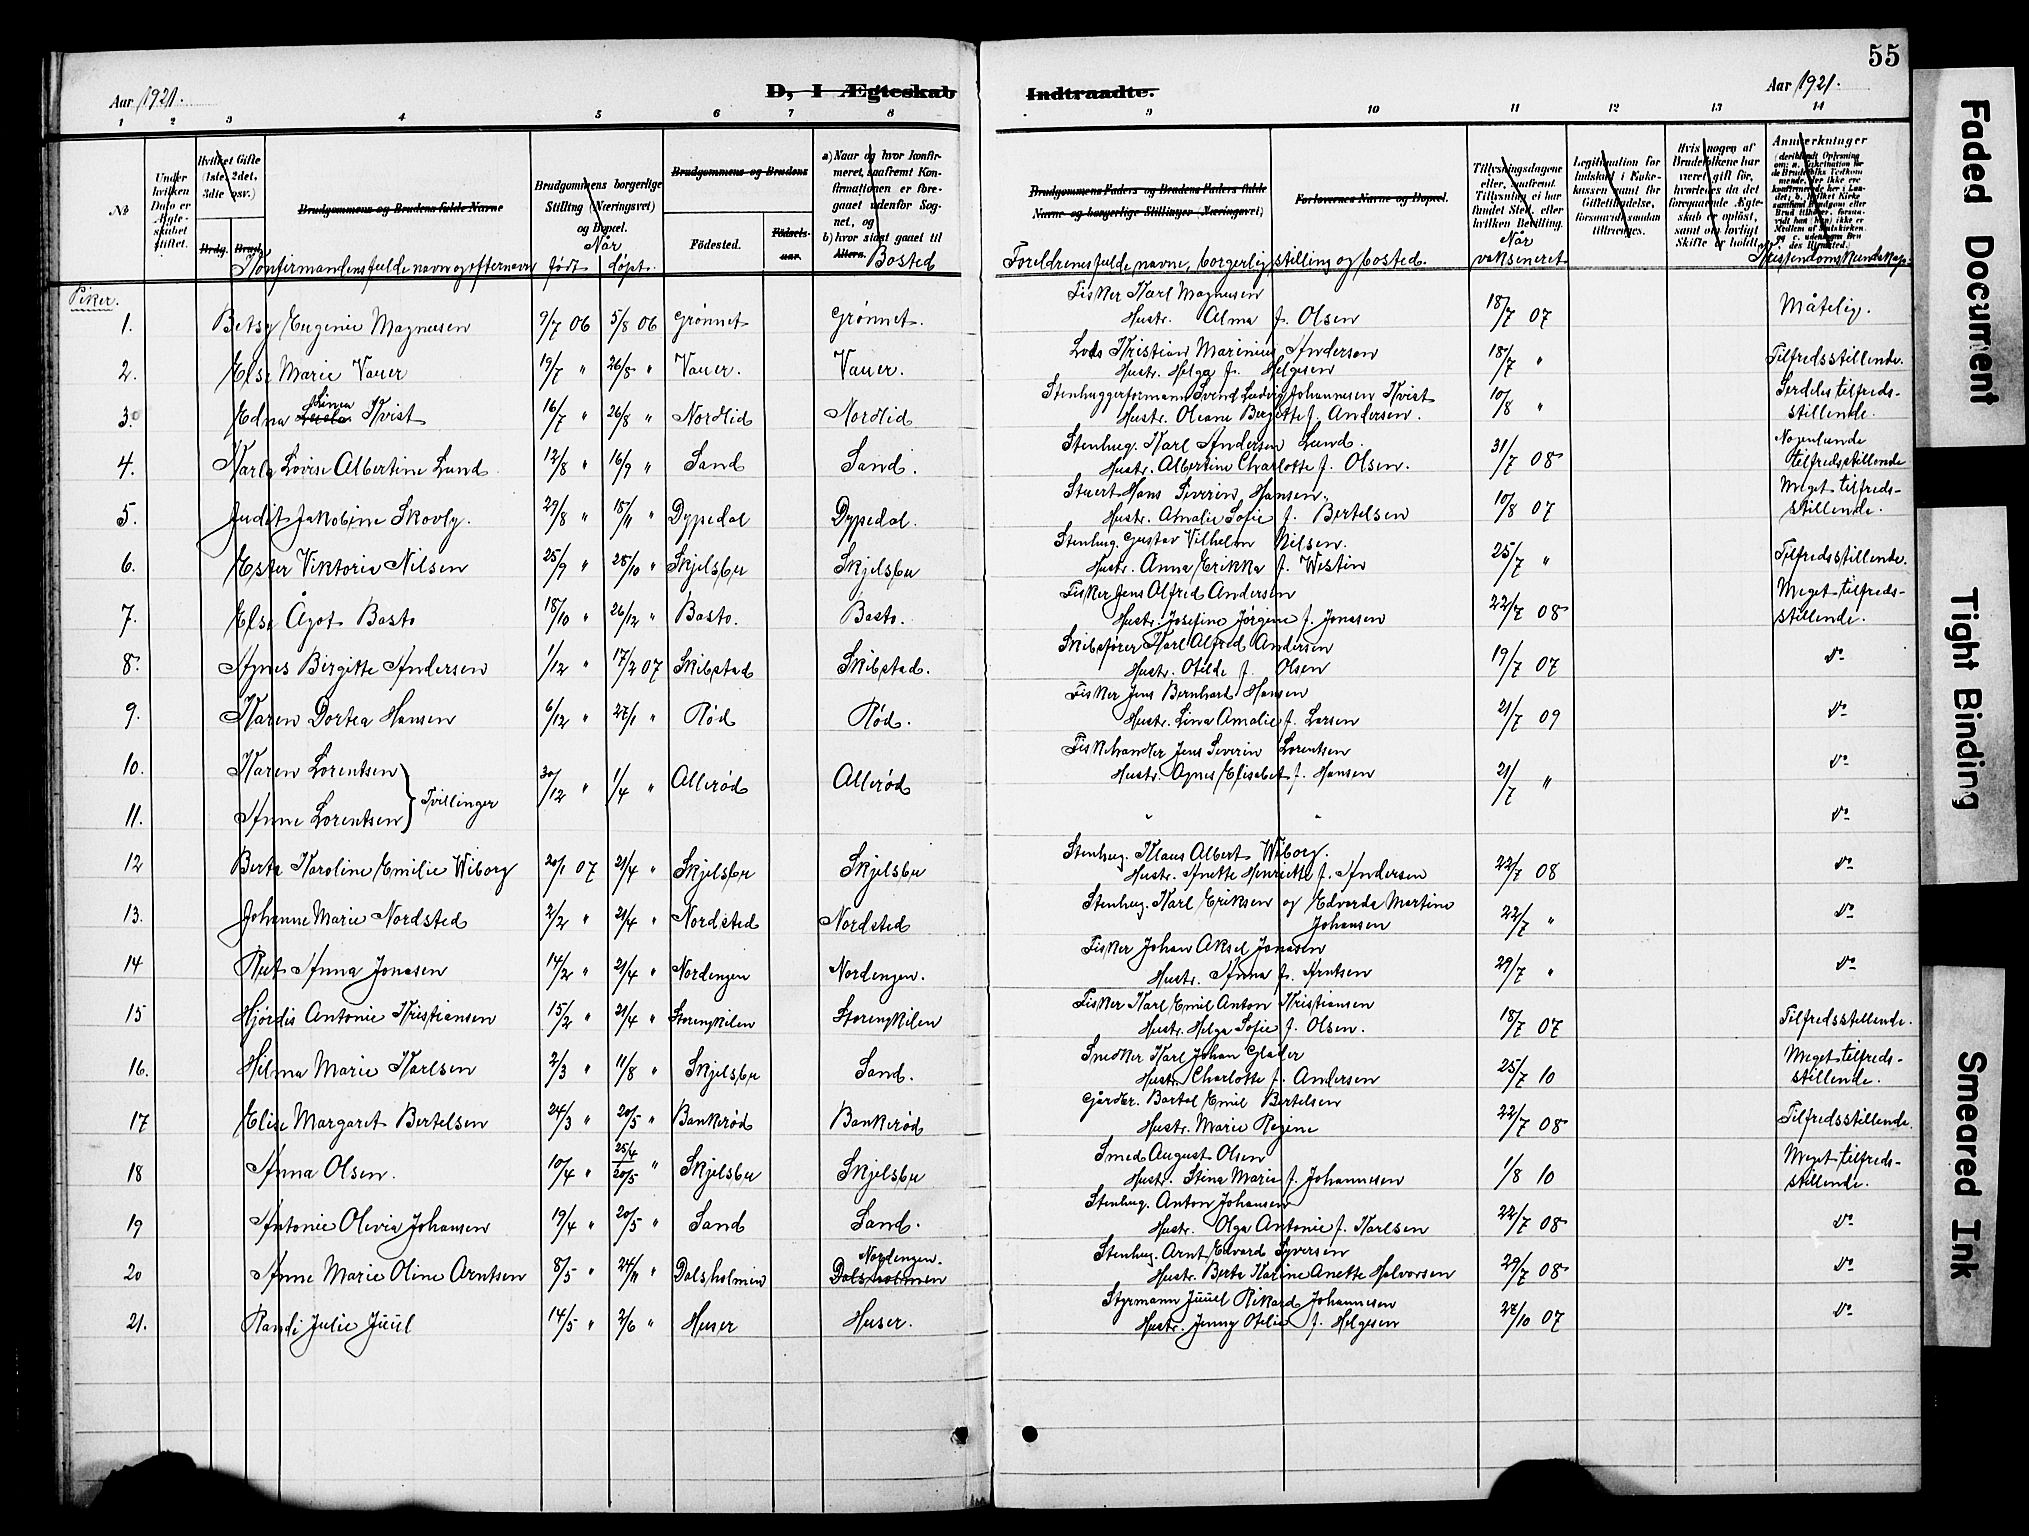 55
Aar 1921.
D, I Ægteskab
Indtraadte.
Aar 1921.
1 2 3 4 5 6 7 8
9 10 11 12 13 14
No
Under hvilken Dato er Ægteskabet stiftet.
Hvilket Gifte (1ste, 2det, 3die osv.)
Brdg. Brud.
Brudgommens og Brudens fulde Navne
Konfirmandens fulde navn og efternavn
Brudgommens borgerlige Stilling (Næringsvei) og Bopæl.
Når
født døpt.
Brudgommens og Brudens
Födested.
Födsels-aar.
a) Naar og hvor konfirmeret, saafremt Konfirmationen er foregaaet udenfor Sognet, og
b) hvor sidst gaaet til Alters.
Bosted
Brudgommens Faders og Brudens Faders fulde Navne og borgerlige Stillinger (Næringsvei)
Forlovernes Navne og Bopæl.
Foreldrenes fulde navne, borgerlig stilling og bosted.
Tillysningsdagene eller, saafremt Tillysning ei har fundet Sted, efter hvilken Bevilling.
Når vaksineret.
Legitimation for Indskud i Enkekassen samt for Giftetilladelse, forsaavidt saadan tiltrænges.
Hvis nogen af Brudefolkene har været gift før, hvorledes da det foregaaende Ægteskab er opløst, samt om lovligt Skifte er holdt.
Anmerkninger
Kristendomskundskap.
Piker.
1. Betsy Eugenie Magnusen 9/7 06 5/8 06 Grønnet Grønnet.
Fisker Karl Magnusen
Hustr. Alma f. Olsen 18/7 07 Måtelig.
2. Else Marie Vauer 19/7 " 26/8 " Vauer. Vauer.
Lods Kristian Marinius Anderson
Hustr. Helga f. Helgesen 18/7 " Tilfredsstillende.
3. Edna Linea Kvist 16/7 " 26/8 " Nordlid Nordlid
Stenhuggerformann Svend Ludvig Johannesen Kvist
Hustr. Oleane Bergitte f. Andersen. 10/8 " Serdeles tilfreds-
stillende.
4. Karla Lovise Albertine Lund 12/8 " 16/9 " Sand Sand.
Stenhug. Karl Andersen Lund.
Hustr. Albertine Charlotte f. Olsen. 31/7 08 Nogenlunde
tilfredsstillende
5. Judit Jakobine Skovly. 29/8 " 18/11 " Dypedal Dypedal.
Stuert Hans Severin Hansen.
Hustr. Amalie Sofie f. Bertelsen 10/8 07 Meget tilfreds-
stillende.
6. Ester Viktoria Nilsen 25/9 " 28/10 " Skjelsbu Skjelsbu
Stenhug. Gustav Vilhelm Nilsen.
Hustr. Anna Erikka f. Westin 25/7 " Tilfredsstillende.
7. Else Ågot Basto 18/10 " 26/12 " Basto. Basto.
Fisker Jens Alfred Andersen
Hustr. Josefine Jørgine f. Jonasen 22/7 08 Meget tilfreds-
stillende.
8. Agnes Birgitte Andersen 1/12 " 17/2 07 Skibstad Skibstad.
Skibsfører Karl Alfred Andersen
Hustr. Otilde f. Olsen 19/7 07 do
9. Karen Dortea Hansen 6/12 " 27/1 " Rød Rød.
Fisker Jens Bernhard Hansen
Hustr. Lina Amalie f. Larsen 21/7 09 do
10. Karen Lorentsen } Tvillinger 30/12 " 1/4 " Allerød Allerød
Fiskehandler Jens Severin Lorentsen
Hustr. Agnes Elisabet f. Hansen 21/7 " do
11. Anne Lorentsen " " do
12 Berta Karoline Emilie Wiborg 20/1 07 21/4 " Skjelsbu Skjelsbu
Stenhug. Klaus Albert Wiborg.
Hustr. Anette Henriette f. Andersen 22/7 08 do
13. Johanne Marie Nordsted 2/2 " 21/4 " Nordsted Nordsted
Stenhug. Karl Eriksen og Edvarda Martine
Johansen 22/7 " do
14 Rut Anna Jonasen 14/2 " 21/4 " Nordengen Nordengen.
Fisker Johan Aksel Jonasen
Hustr. Anna f. Arntsen 29/7 " do
15 Hjørdis Antonie Kristiansen 15/2 " 21/4 " Storengkilen Storengkilen
Fisker Karl Emil Anton Kristiansen
Hustr. Helga Sofie f. Olsen. 18/7 07 Tilfredsstillende.
16. Hilma Marie Karlsen 2/3 " 11/8 " Skjelsbu Sand.
Snedker Karl Johan Glader
Hustr. Charlotte f. Andersen 25/7 10 Meget tilfreds-
stillende.
17 Elise Margaret Bertelsen 24/3 " 20/5 " Bankerød Bankerød
Gårdbr. Bartal Emil Bertelsen
Hustr. Marie Regine 22/7 08 Tilfredsstillende.
18 Anna Olsen. 10/4 " 25/4 20/5 " Skjelsbu Skjelsbu
Smed August Olsen
Hustr. Stina Marie f. Johannesen 1/8 10 Meget tilfreds-
stillende.
19 Antonie Olivia Johansen 19/4 " 20/5 " Sand Sand.
Stenhug. Anton Johansen
Hustr. Olga Antonie f. Karlsen 22/7 08 do
20 Anne Marie Oline Arntsen 8/5 " 24/11 " Dalsholmen Nordengen.
Dalsholmen
Stenhug. Arnt Edvard Syversen
Hustr. Berta Karine Anette Halvorsen 29/7 08 do
21. Randi Julie Juul 14/5 " 2/6 " Huser Huser.
Styrmann Juul Rikard Johannesen
Hustr. Jenny Otelie f. Helgesen 27/10 07 do
Faded Document
Tight Binding
Smeared Ink